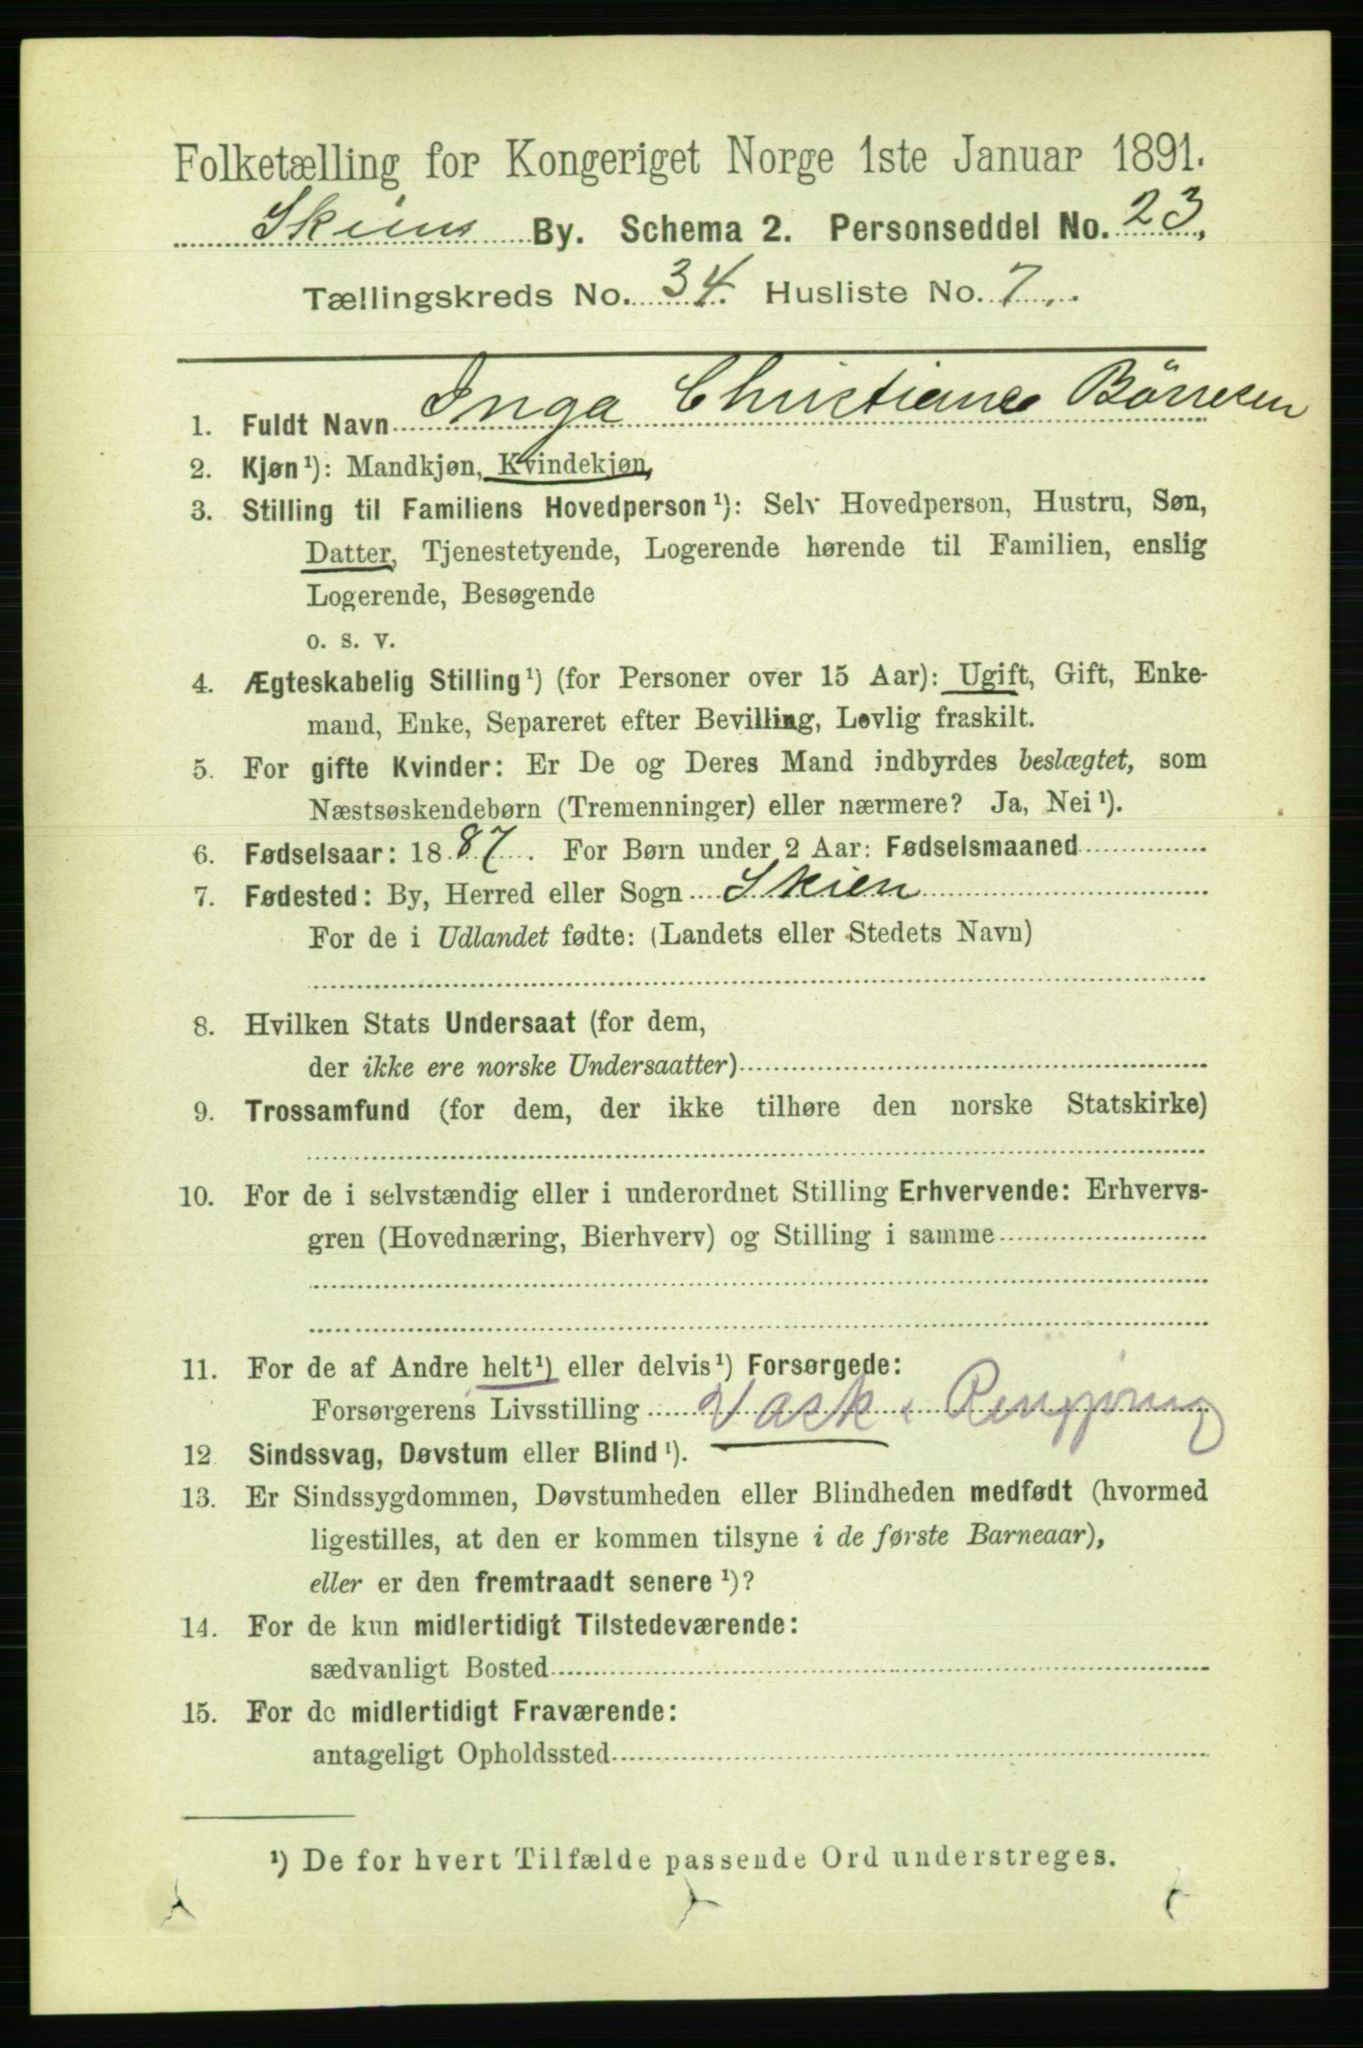 Folketælling for Kongeriget Norge 1ste Januar 1891.
Skiens By. Schema 2. Personseddel No. 23.
Tællingskreds No. 34. Husliste No. 7.
1. Fuldt Navn Inga Christiane Börresen
2. Kjøn ¹): Mandkjøn, Kvindekjøn,
3. Stilling til Familiens Hovedperson ¹): Selv Hovedperson, Hustru, Søn,
Datter, Tjenestetyende, Logerende hørende til Familien, enslig
Logerende, Besøgende
o. s. v.
4. Ægteskabelig Stilling ¹) (for Personer over 15 Aar): Ugift, Gift, Enke-
mand, Enke, Separeret efter Bevilling, Lovlig fraskilt.
5. For gifte Kvinder: Er De og Deres Mand indbyrdes beslægtet, som
Næstsøskendebørn (Tremenninger) eller nærmere? Ja, Nei ¹).
6. Fødselsaar: 1887. For Børn under 2 Aar: Fødselsmaaned
7. Fødested: By, Herred eller Sogn Skien
For de i Udlandet fødte: (Landets eller Stedets Navn)
8. Hvilken Stats Undersaat (for dem,
der ikke ere norske Undersaatter)
9. Trossamfund (for dem, der ikke tilhøre den norske Statskirke)
10. For de i selvstændig eller i underordnet Stilling Erhvervende: Erhvervs-
gren (Hovednæring, Bierhverv) og Stilling i samme
11. For de af Andre helt ¹) eller delvis ¹) Forsørgede:
Forsørgerens Livsstilling Vask & Rengjöring
12 Sindssvag, Døvstum eller Blind ¹).
13. Er Sindssygdommen, Døvstumheden eller Blindheden medfødt (hvormed
ligestilles, at den er kommen tilsyne i de første Barneaar),
eller er den fremtraadt senere ¹)?
14. For de kun midlertidigt Tilstedeværende:
sædvanligt Bosted
15. For de midlertidigt Fraværende:
antageligt Opholdssted
¹) De for hvert Tilfælde passende Ord understreges.